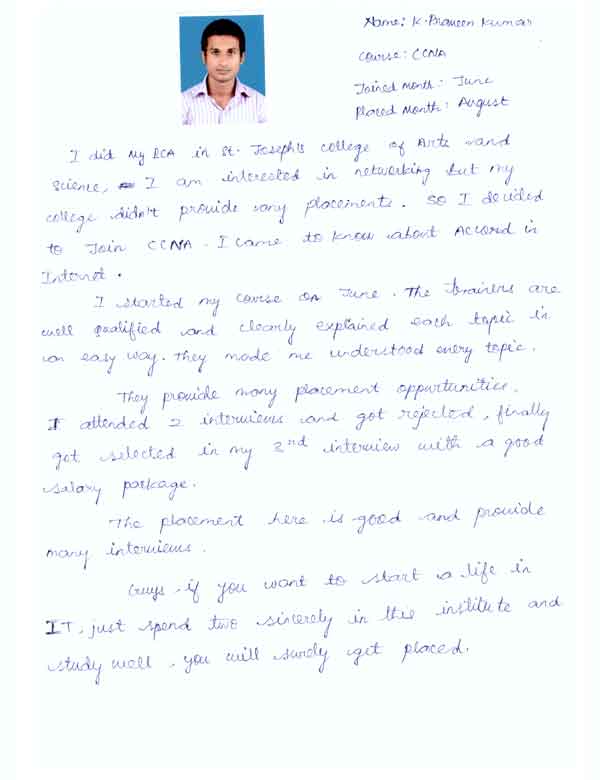 Name: K. Praveen Kumar
Course: CCNA
Joined month: June
Placed Month: August
I did My BCA in St. Joseph's college of Arts and
Science, I am interested in networking but my
college didn't provide any placements. So I decided
to Join CCNA. I came to know about Accord in
Internet.
I started my course on June. The trainers are
well qualified and clearly explained each topic in
an easy way. They made me understood every topic.
They provide many placement oppurtunities.
I attended 2 interviews and got rejected, finally
got selected in my 2nd interview with a good
salary package.
The placement here is good and provide
many interviews.
Guys, if you want to start a life in
IT, just spend two sincerely in this institute and
study well, you will surely get placed.